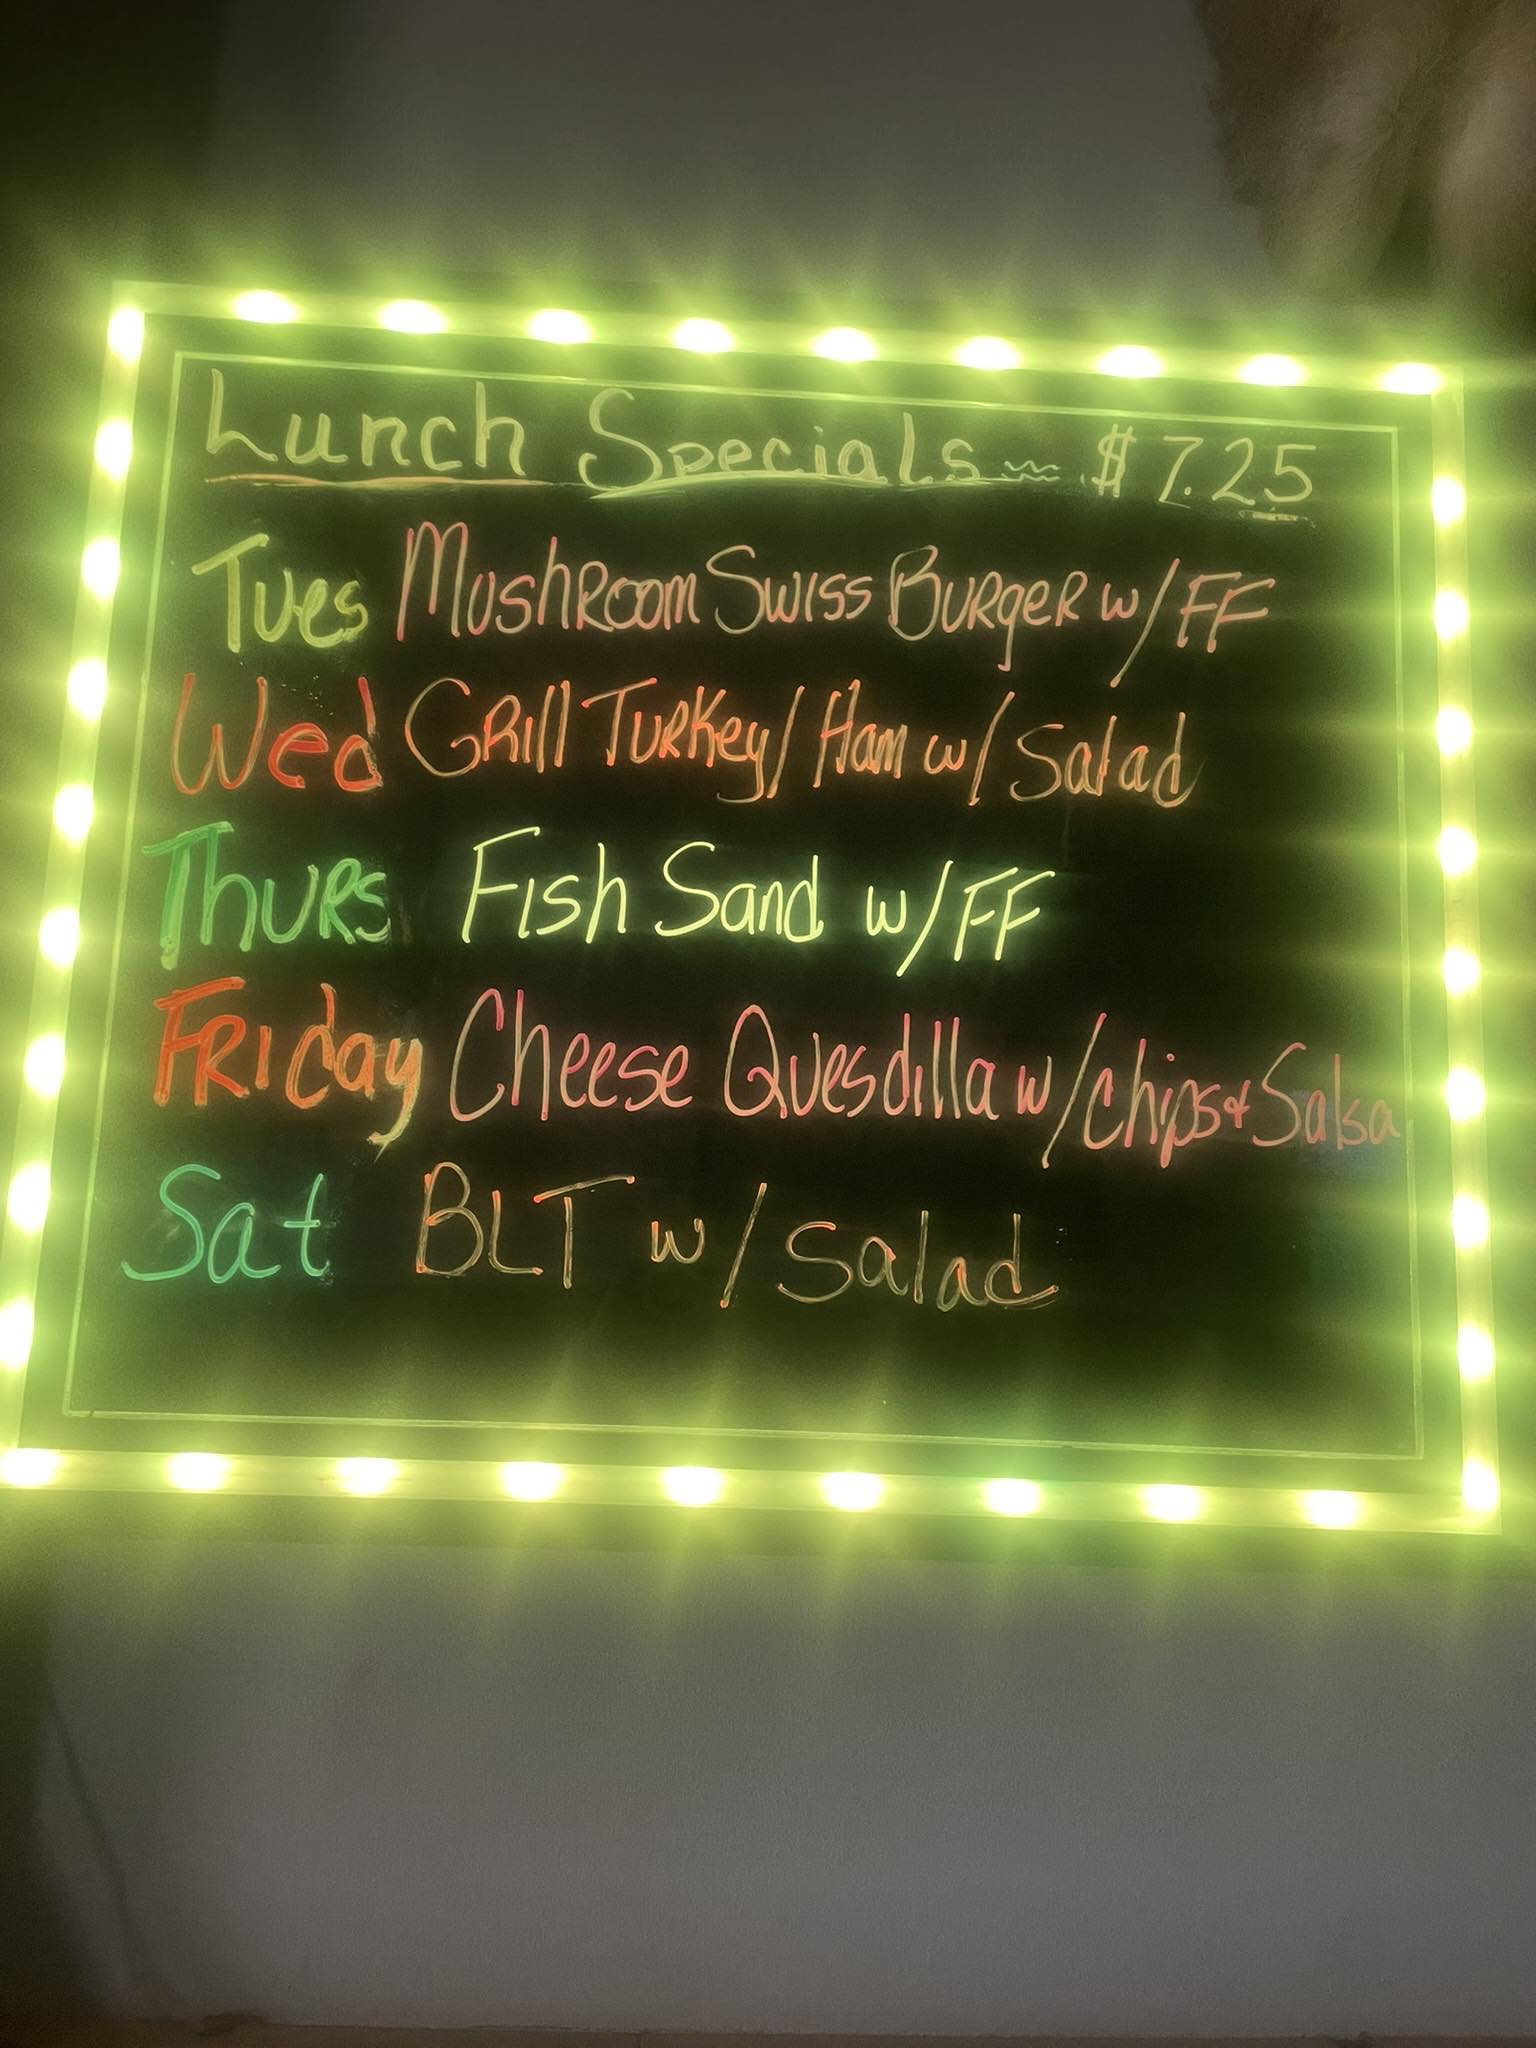 Lunch Specials ~~ $7.25
Tues Mushroom Swiss Burger w/ FF
Wed Grill Turkey/Ham w/ Salad
Thurs Fish Sand w/ FF
Friday Cheese Quesdilla w/ chips & Salsa
Sat BLT w/ Salad